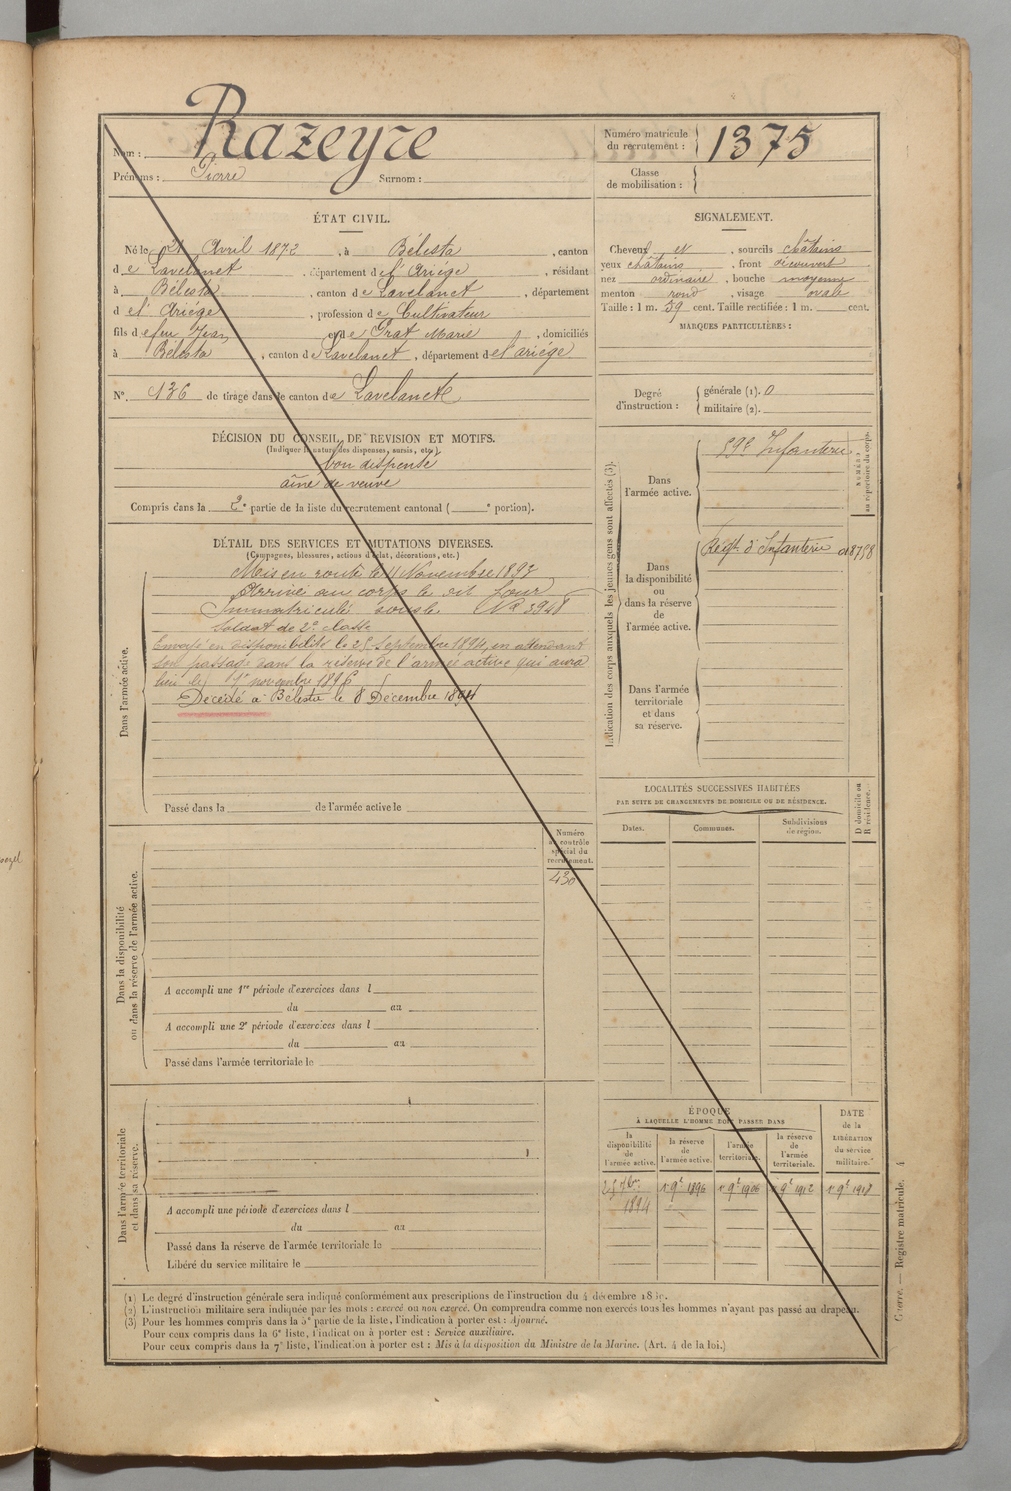 Nom : Razeyre
Prénoms : Pierre Surnom :
Numéro matricule du recrutement : 1375
Classe de mobilisation :
ÉTAT CIVIL.
Né le 21 Avril 1872, à Bélesta, canton
de Lavelanet, département de l'Ariége, résidant
à Bélesta, canton de Lavelanet, département
de l'Ariége, profession de Cultivateur
fils de feu Jean et de Prat Marie, domiciliés
à Bélesta, canton de Lavelanet, département de l'ariége
N°. 136 de tirage dans le canton de Lavelanet
SIGNALEMENT.
Cheveux et, sourcils châtains
yeux châtains, front découvert
nez ordinaire, bouche moyenne
menton rond, visage ovale
Taille : 1 m. 59 cent. Taille rectifiée : 1 m. cent.
MARQUES PARTICULIÈRES :
Degré d'instruction : générale (1). 0
militaire (2).
DÉCISION DU CONSEIL DE REVISION ET MOTIFS.
(Indiquer la nature des dispenses, sursis, etc.)
bon dispensé
aîné de veuve
Compris dans la 2e partie de la liste du recrutement cantonal ( e portion).
DÉTAIL DES SERVICES ET MUTATIONS DIVERSES.
(Campagnes, blessures, actions d'éclat, décorations, etc.)
Dans l'armée active.
Mis en route le 11 Novembre 1893
Arrivé au corps le dit jour
Immatriculé sous le N° 3948
Soldat de 2e classe
Envoyé en disponibilité le 25 Septembre 1894, en attendant
son passage dans la réserve de l'armée active qui aura
lieu le 1er novembre 1896
Décédé à Bélesta le 8 Décembre 1894
Passé dans la de l'armée active le
Indication des corps auxquels les jeunes gens sont affectés (3).
Dans l'armée active.
59e Infanterie
NUMÉRO au répertoire du corps.
Dans la disponibilité ou dans la réserve de l'armée active.
Régt d'Infanterie
Dans l'armée territoriale et dans sa réserve.
LOCALITÉS SUCCESSIVES HABITÉES
PAR SUITE DE CHANGEMENTS DE DOMICILE OU DE RÉSIDENCE.
Dates. Communes. Subdivisions de région.
D domicile ou R résidence.
Dans la disponibilité ou dans la réserve de l'armée active.
Numéro au contrôle spécial du recrutement.
430
A accompli une 1re période d'exercices dans l
du au
A accompli une 2e période d'exercices dans l
du au
Passé dans l'armée territoriale le
Dans l'armée territoriale et dans sa réserve.
A accompli une période d'exercices dans l
du au
Passé dans la réserve de l'armée territoriale le
Libéré du service militaire le
ÉPOQUE
À LAQUELLE L'HOMME DOIT PASSER DANS
la disponibilité de l'armée active.
la réserve de l'armée active.
l'armée territoriale.
la réserve de l'armée territoriale.
DATE de la LIBÉRATION du service militaire.
25 7bre 1894
1 9e 1896
1 9e 1906
1 9e 1912
1 9e 1918
(1) Le degré d'instruction générale sera indiqué conformément aux prescriptions de l'instruction du 4 décembre
(2) L'instruction militaire sera indiquée par les mots : exercé ou non exercé. On comprendra comme non exercés tous les hommes n'ayant pas passé au drapeau.
(3) Pour les hommes compris dans la 5e partie de la liste, l'indication à porter est : Ajourné.
Pour ceux compris dans la 6e liste, l'indication à porter est : Service auxiliaire.
Pour ceux compris dans la 7e liste, l'indication à porter est : Mis à la disposition du Ministre de la Marine. (Art. 4 de la loi.)
Guerre. — Registre matricule. 4